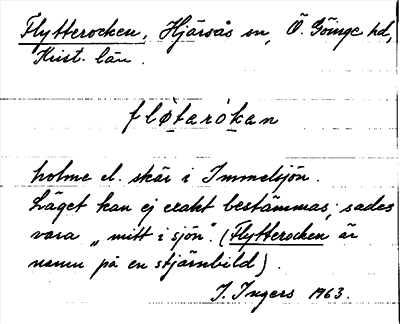 Flytterocken, Hjärsås sn, Ö. Göinge hd,
Krist. län.
fløtarókan
holme el. skär i Immelsjön.
Läget kan ej exakt bestämmas; sades
vara „mitt i sjön". (Flytterocken är
namn på en stjärnbild).
I. Ingers 1963.